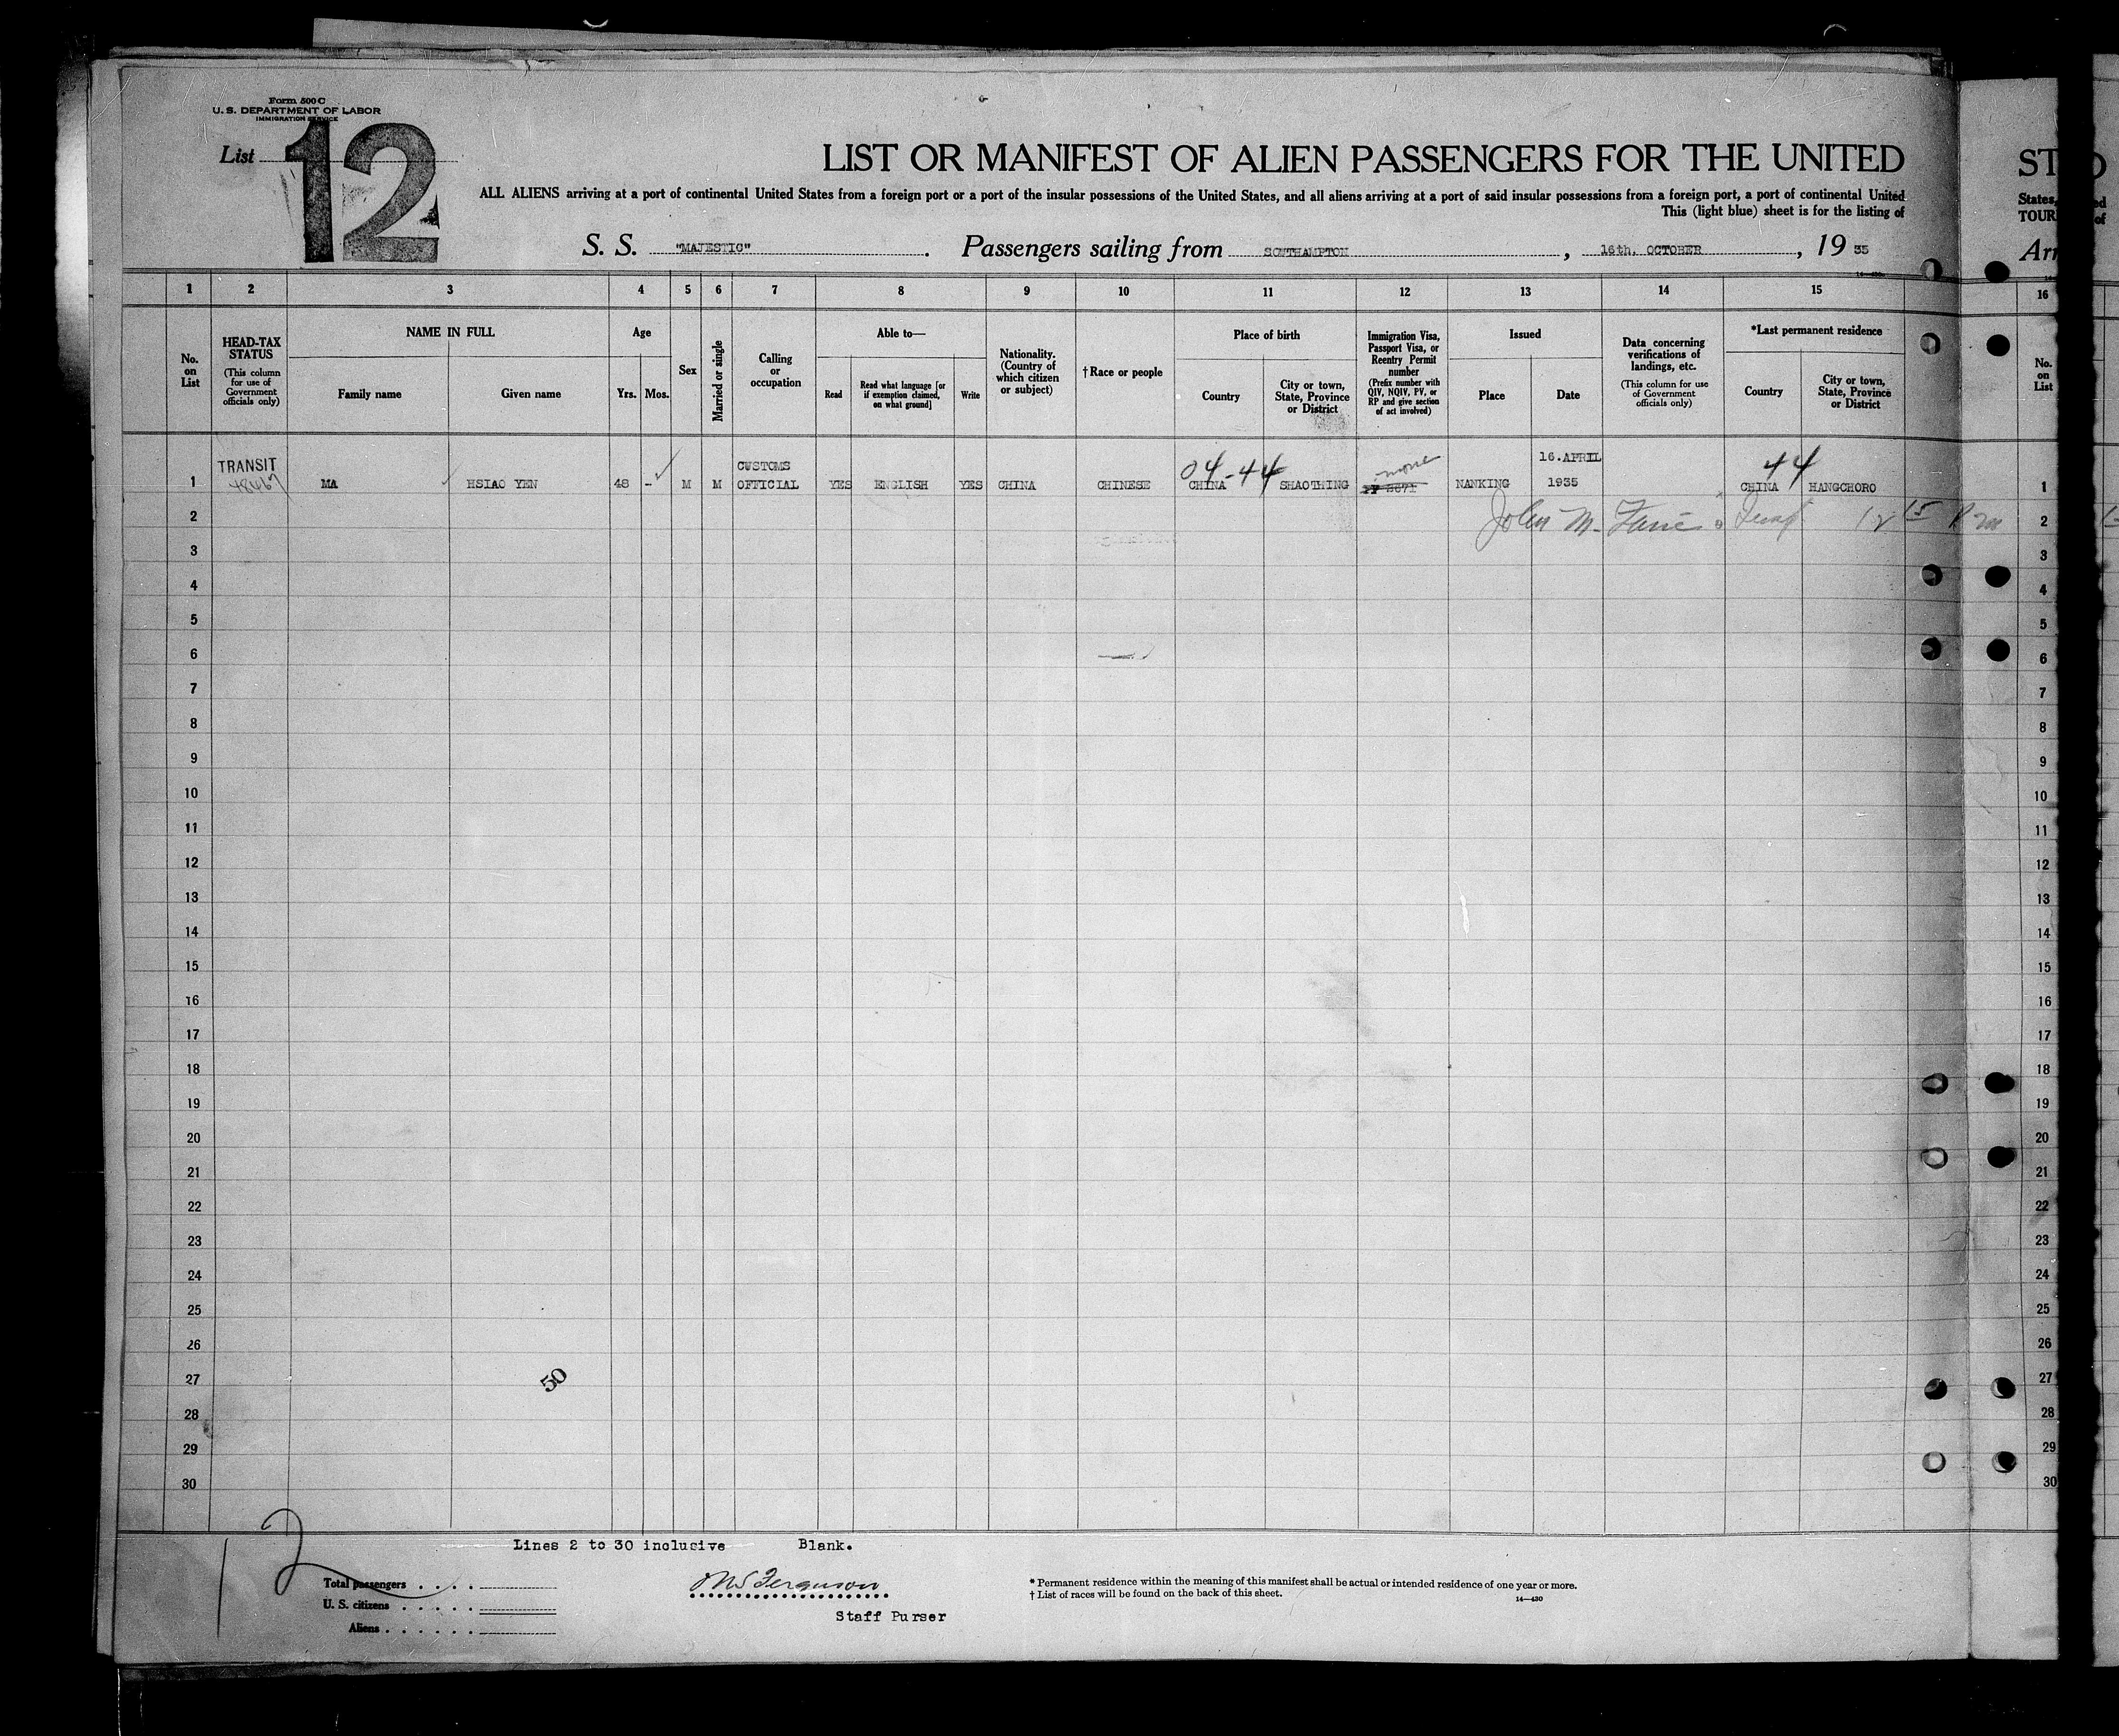 Form 500 C
U. S. DEPARTMENT OF LABOR
IMMIGRATION SERVICE
List 12
LIST OR MANIFEST OF ALIEN PASSENGERS FOR THE UNITED
ST
ALL ALIENS arriving at a port of continental United States from a foreign port or a port of the insular possessions of the United States, and all aliens arriving at a port of said insular possessions from a foreign port, a port of continental United
States,
This (light blue) sheet is for the listing of
TOUR
of
S. S. "MAJESTIC". Passengers sailing from SOUTHAMPTON, 16th. OCTOBER, 19 35
Arr
1 2 3 4 5 6 7 8 9 10 11 12 13 14 15 16
No. on List
HEAD-TAX STATUS
(This column for use of Government officials only)
NAME IN FULL
Family name
Given name
Age
Yrs.
Mos.
Sex
Married or single
Calling or occupation
Able to—
Read
Read what language [or if exemption claimed, on what ground]
Write
Nationality. (Country of which citizen or subject)
†Race or people
Place of birth
Country
City or town, State, Province or District
Immigration Visa, Passport Visa, or Reentry Permit number
(Prefix number with QIV, NQIV, PV, or RP and give section of act involved)
Issued
Place
Date
Data concerning verifications of landings, etc.
(This column for use of Government officials only)
*Last permanent residence
Country
City or town, State, Province or District
No. on List
TRANSIT
CUSTOMS
04-44
none
16.APRIL
44
1 MA HSIAO YEN 48 - M M OFFICIAL YES ENGLISH YES CHINA CHINESE CHINA SHAOTHING NANKING 1935 CHINA HANGCHORO 1
2 John M. 12 15 P m 2
3 3
4 4
5 5
6 6
7 7
8 8
9 9
10 10
11 11
12 12
13 13
14 14
15 15
16 16
17 17
18 18
19 19
20 20
21 21
22 22
23 23
24 24
25 25
26 26
27 50 27
28 28
29 29
30 30
Lines 2 to 30 inclusive Blank.
12
Total passengers
U. S. citizens
Aliens
Ferguson
Staff Purser
* Permanent residence within the meaning of this manifest shall be actual or intended residence of one year or more.
† List of races will be found on the back of this sheet.
14—430